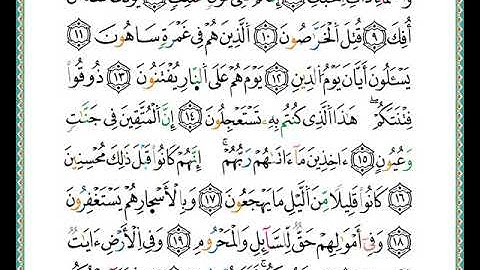 أُفِكَ ٩ قُتِلَ ٱلْخَرَّٰصُونَ ١٠ ٱلَّذِينَ هُمْ فِى غَمْرَةٍ سَاهُونَ ١١
يَسْـَٔلُونَ أَيَّانَ يَوْمُ ٱلدِّينِ ١٢ يَوْمَ هُمْ عَلَى ٱلنَّارِ يُفْتَنُونَ ١٣ ذُوقُوا۟
فِتْنَتَكُمْ هَٰذَا ٱلَّذِى كُنتُم بِهِۦ تَسْتَعْجِلُونَ ١٤ إِنَّ ٱلْمُتَّقِينَ فِى جَنَّٰتٍ
وَعُيُونٍ ١٥ ءَاخِذِينَ مَآ ءَاتَىٰهُمْ رَبُّهُمْ ۚ إِنَّهُمْ كَانُوا۟ قَبْلَ ذَٰلِكَ مُحْسِنِينَ
١٦ كَانُوا۟ قَلِيلًا مِّنَ ٱلَّيْلِ مَا يَهْجَعُونَ ١٧ وَبِٱلْأَسْحَارِ هُمْ يَسْتَغْفِرُونَ
١٨ وَفِىٓ أَمْوَٰلِهِمْ حَقٌّ لِّلسَّآئِلِ وَٱلْمَحْرُومِ ١٩ وَفِى ٱلْأَرْضِ ءَايَٰتٌ